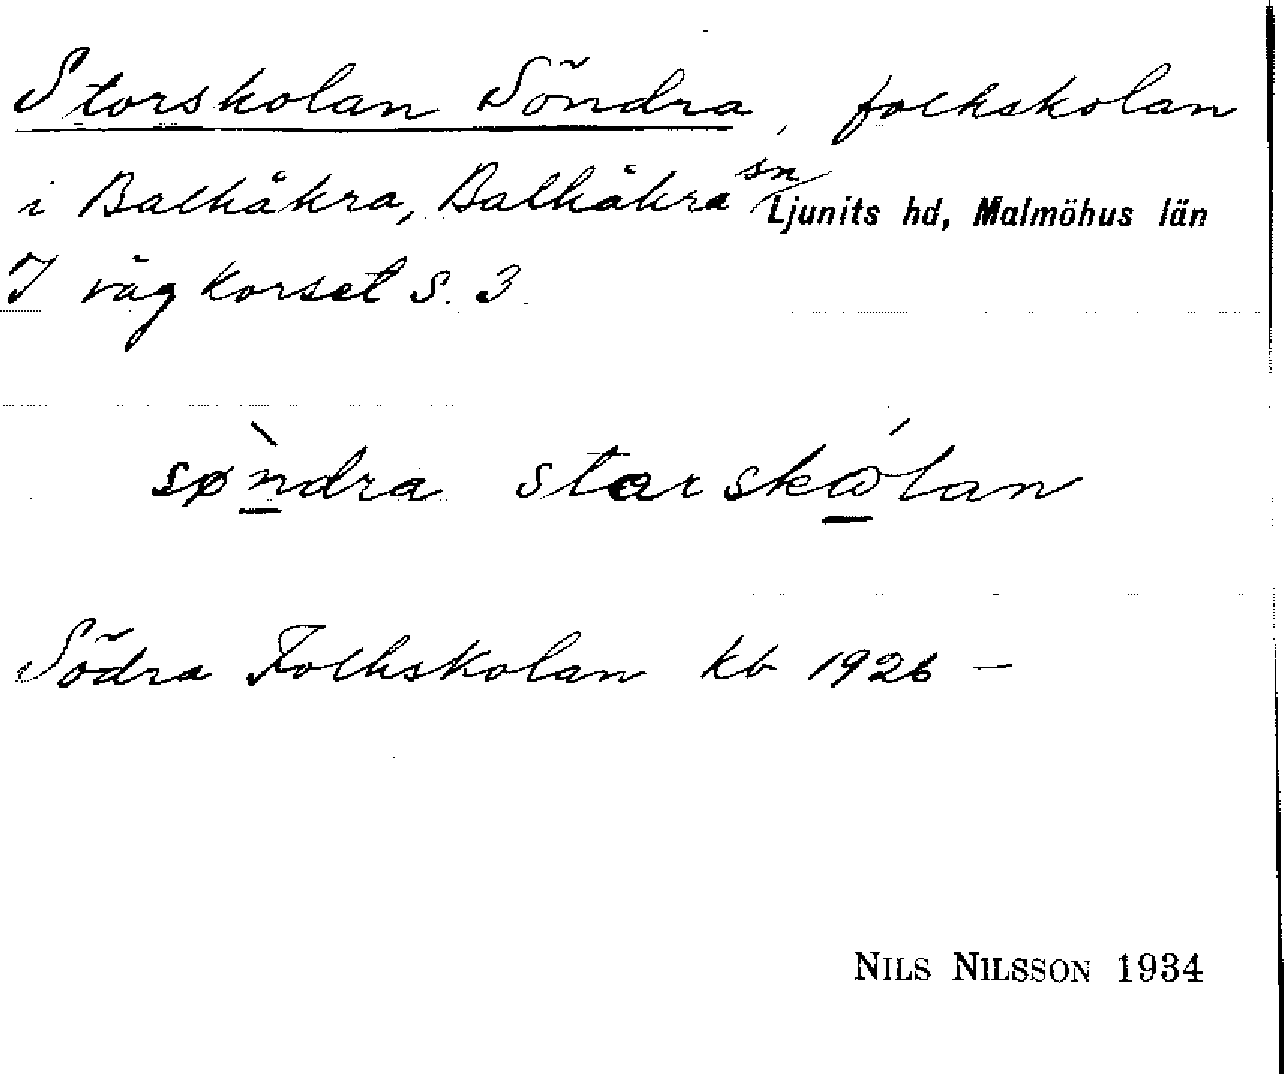 Storskolan Söndra, folkskolan
i Balkåkra, Balkåkra sn Ljunits hd, Malmöhus län
I vägkorset S. 3.
sø̀n̲dra starskώ̲lan
Södra Folkskolan kb 1926 —
NILS NILSSON 1934